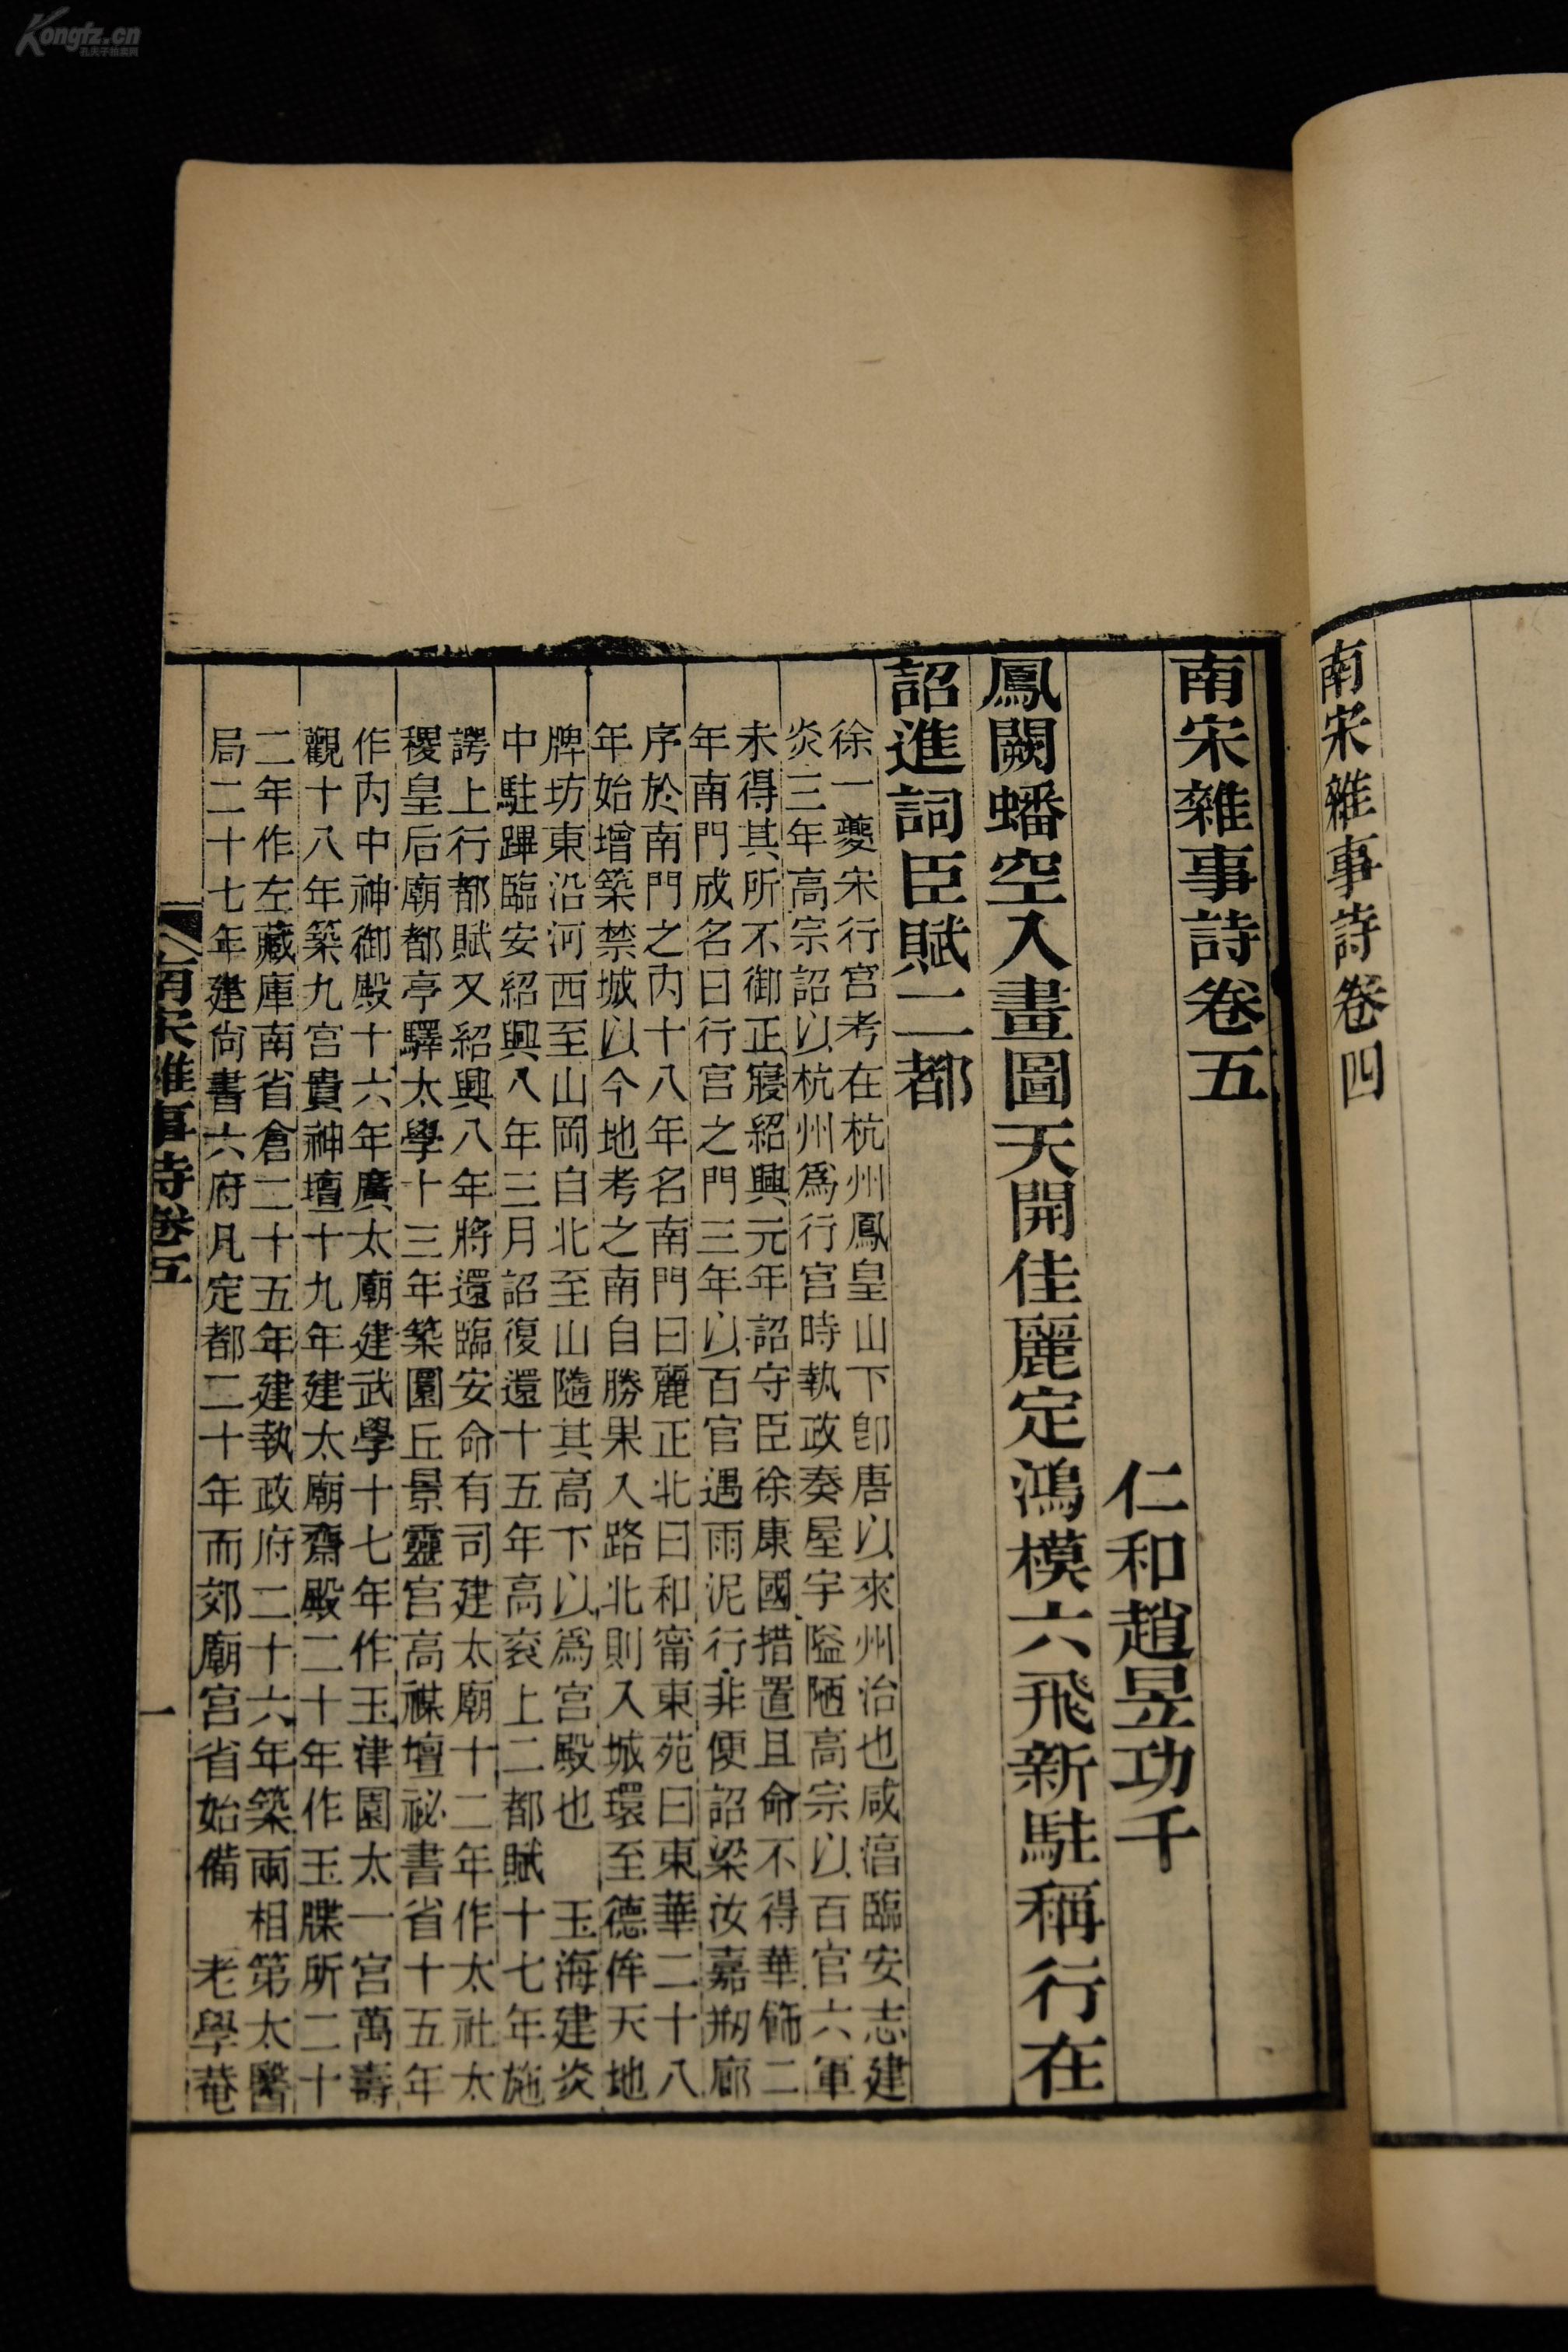 Kongfz.cn
孔夫子拍卖网
南宋雜事詩卷四
南宋雜事詩卷五
仁和趙昱功千
鳳闕蟠空入畫圖天開佳麗定鴻模六飛新駐稱行在
詔進詞臣賦二都
徐一夔宋行宮考在杭州鳳皇山下卽唐以來州治也咸湻臨安志建
炎三年高宗詔以杭州爲行宮時執政奏屋宇隘陋高宗以百官六軍
未得其所不御正寢紹興元年詔守臣徐康國措置且命不得華飾二
年南門成名曰行宮之門三年以百官遇雨泥行非便詔梁汝嘉剏廊
序於南門之內十八年名南門曰麗正北曰和甯東苑曰東華二十八
年始增築禁城以今地考之南自勝果入路北則入城環至德侔天地
牌坊東沿河西至山岡自北至山隨其高下以爲宮殿也 玉海建炎
中駐蹕臨安紹興八年三月詔復還十五年高衮上二都賦十七年施
諤上行都賦又紹興八年將還臨安命有司建太廟十二年作太社太
稷皇后廟都亭驛太學十三年築圜丘景靈宮高禖壇祕書省十五年
作內中神御殿十六年廣太廟建武學十七年作玉津園太一宮萬壽
觀十八年築九宮貴神壇十九年建太廟齋殿二十年作玉牒所二十
二年作左藏庫南省倉二十五年建執政府二十六年築兩相第太醫
局二十七年建尙書六府凡定都二十年而郊廟宮省始備 老學菴
南宋雜事詩卷五
一